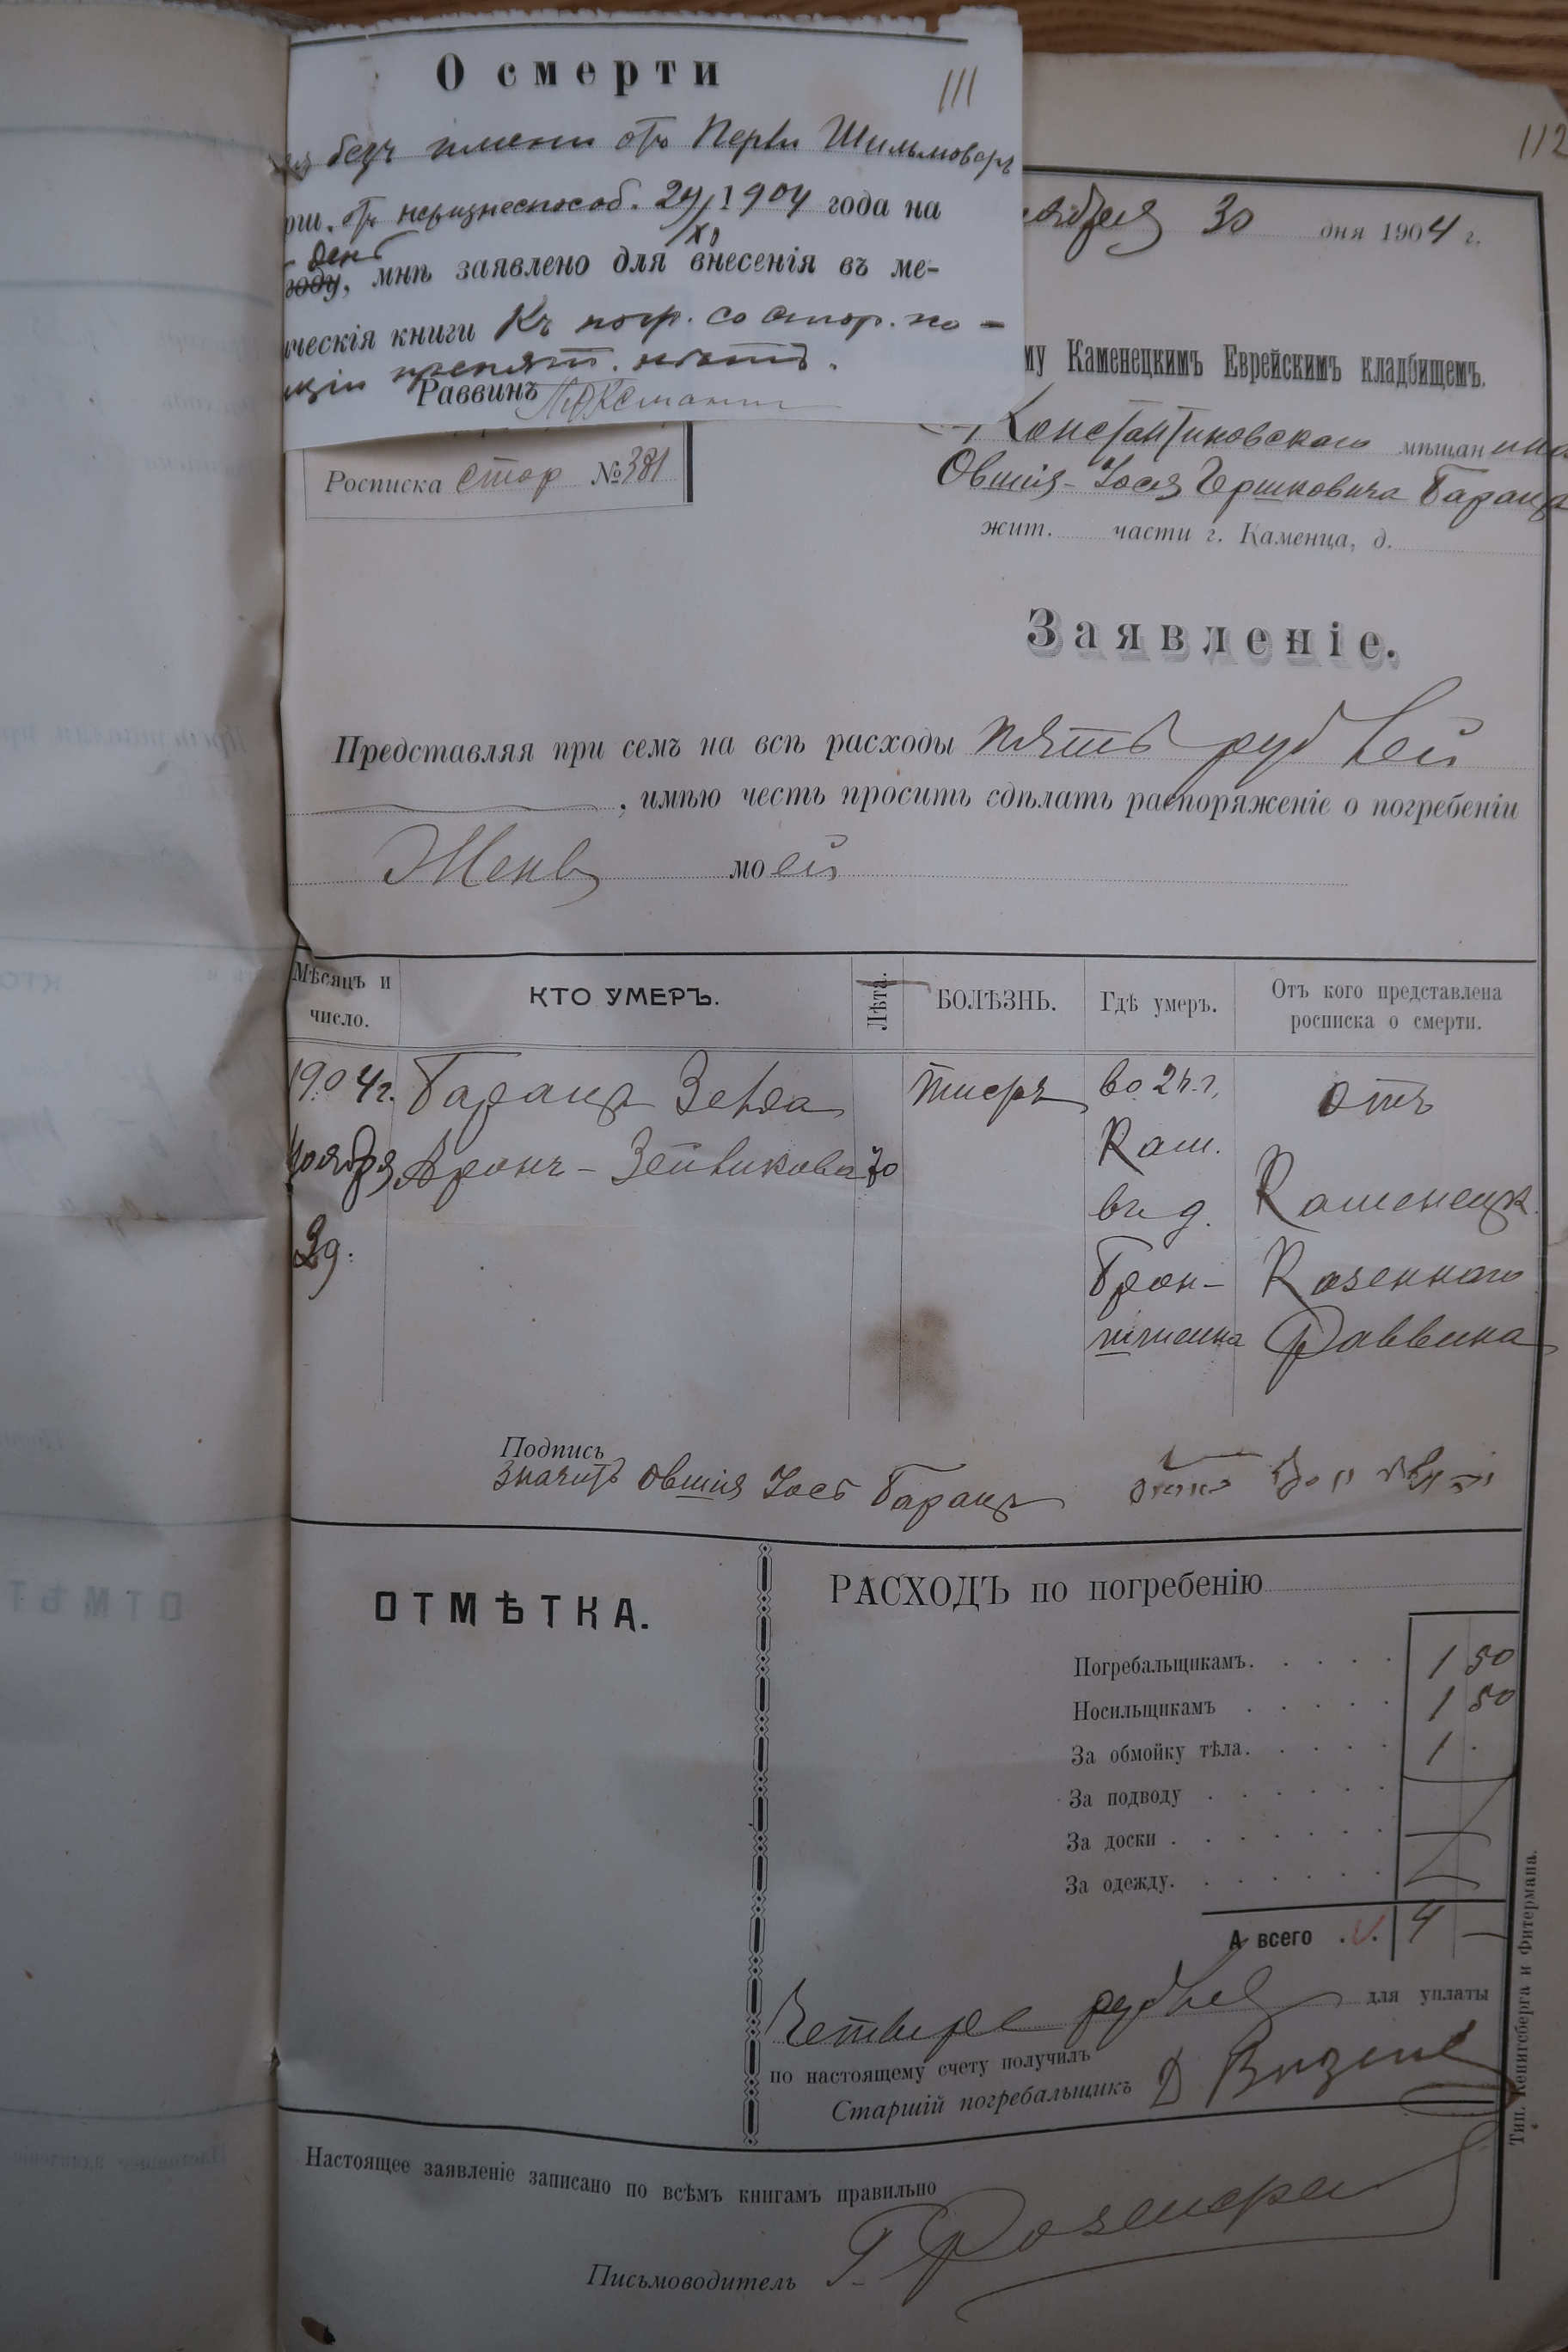 О смерти
111
безъ имени отъ Перли Шильмоверъ
отъ неж
изнеспособ. 24/XI 1904 года на
день
году, мнѣ заявлено для внесенія въ ме-
ческія книги Къ погр. со стор. по-
ціи препят. нѣтъ.
Раввинъ
112
30 дня 1904 г.
му Каменецкимъ Еврейскимъ кладбищемъ.
Константиновскаго мѣщанина
Овшія-Іося Гершковича Баранъ
жит. части г. Каменца, д.
Росписка стор №381
Заявленіе.
Представляя при семъ на всѣ расходы пять рублей
, имѣю честь просить сдѣлать распоряженіе о погребеніи
Жены моей
Мѣсяцъ и число.
КТО УМЕРЪ.
Лѣта.
БОЛѢЗНЬ.
Гдѣ умеръ.
Отъ кого представлена росписка о смерти.
1904г. ноября 29.
Аронъ-Зейликова
70
во 2 ч. г. Кам. въ д.
отъ Каменецк. Казеннаго Раввина
Подпись
значитъ Овшія Іосъ
ОТМѢТКА.
РАСХОДЪ по погребенію
Погребальщикамъ. 1 50
Носильщикамъ 1 50
За обмойку тѣла. 1 -
За подводу
За доски
За одежду.
А всего 4 —
Четыре рубле для уплаты
по настоящему счету получилъ
Старшій погребальщикъ
Настоящее заявленіе записано по всѣмъ книгамъ правильно
Письмоводитель
Тип. Кенигсберга и Фитермана.